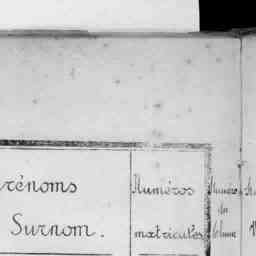 rénoms
Surnom.
Numéros
matricules
Numéros
du